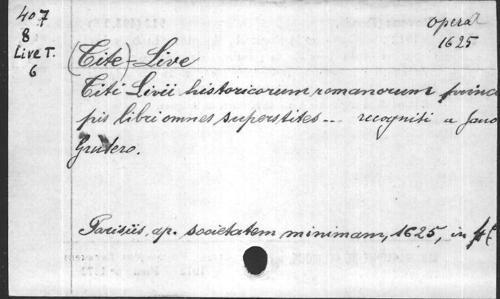 407
8
Live T.
6
opera
1625
(Tite)-Live
Titi Livii historicorum romanorum princi
pis libri omnes superstites... recogniti a Jano
Grutero.
Parisiis, ap. societatem minimam, 1625, in